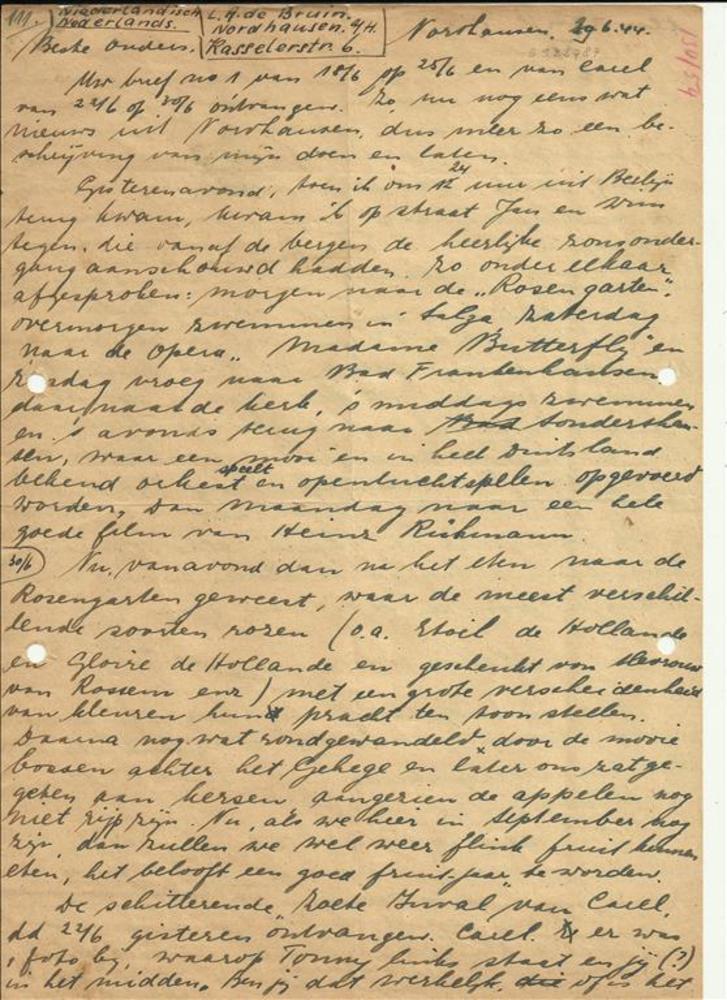 111. Niederländisch Nederlands. L. A. de Bruin. Nordhausen. a/H. Kasselerstr. 6. Nordhausen, 29.6.44.
Beste Ouders.
Uw brief no 1 van 18/6 op 25/6 en van Carel
van 22/6 op 30/6 ontvangen. Zo, nu nog eens wat
nieuws uit Nordhausen, dus meer zo een be-
schrijving van mijn doen en laten.
Gisterenavond, toen ik om 24 uur uit Berlijn
terug kwam, kwam ik op straat Jan en Wim
tegen, die vanaf de bergen de heerlijke zonsonder-
gang aanschouwd hadden. Zo onder elkaar
afgesproken: morgen naar de „Rosengarten",
overmorgen zwemmen in Salza, Zaterdag
naar de Opera „Madame Butterfly" en
Zondag vroeg naar Bad Frankenhausen
daar naar de kerk, 's middags zwemmen
en 's avonds terug naar Sondershau-
sen, waar een mooi en in heel Duitsland
bekend orkest speelt en openluchtspellen opgevoerd
worden, Dan Maandag naar een hele
goede film van Heinz Rühmann.
30/6 Nu, vanavond dan na het eten naar de
Rosengarten geweest, waar de meest verschil-
lende soorten rozen (o.a. Etoil de Hollande
en Gloire de Hollande en geschenkt von Mevrouw
van Rossem enz) met een grote verscheidenheid
van kleuren hun pracht ten toon stellen.
Daarna nog wat rondgewandeld door de mooie
bossen achter het Gehege en later ons zat ge-
geten aan kersen aangezien de appelen nog
niet rijp zijn. Nu, als we hier in September nog
zijn dan zullen we wel weer flink fruit kunnen
eten, het belooft een goed fruit-jaar te worden.
De schitterende „Zoete Inval" van Carel,
dd 22/6 gisteren ontvangen. Carel. er was
1 foto bij, waarop Tonny links staat en jij (?)
in het midden. Ben jij dat werkelijk, of is het